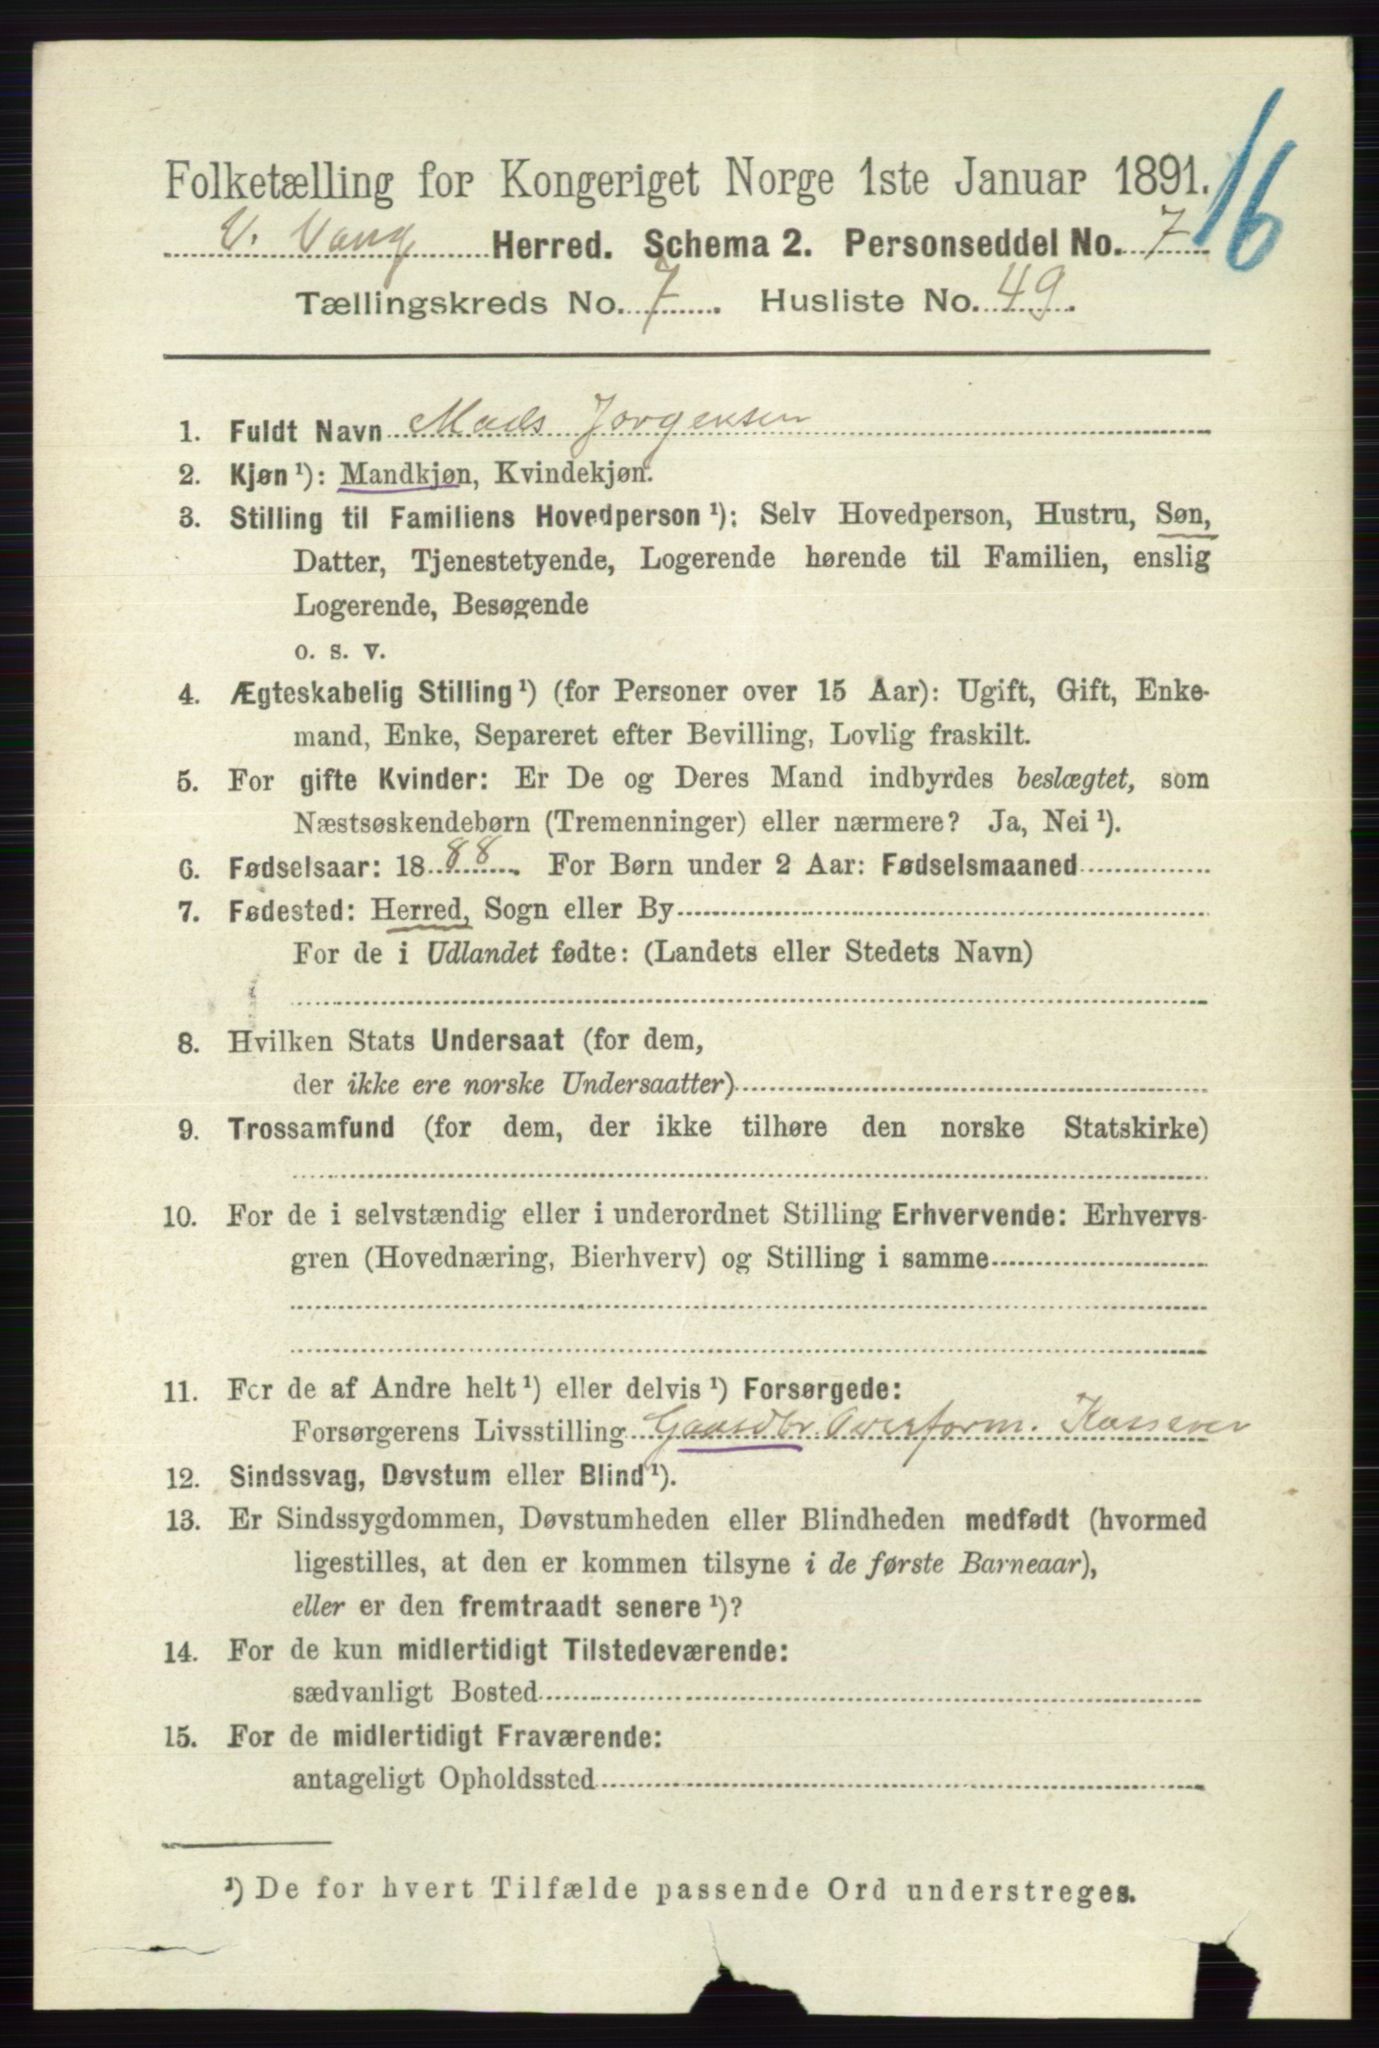 16
Folketælling for Kongeriget Norge 1ste Januar 1891.
V. Vang Herred. Schema 2. Personseddel No. 7
Tællingskreds No. 7. Husliste No. 49.
1. Fuldt Navn Mads Jørgensen
2. Kjøn ¹): Mandkjøn, Kvindekjøn.
3. Stilling til Familiens Hovedperson ¹): Selv Hovedperson, Hustru, Søn,
Datter, Tjenestetyende, Logerende hørende til Familien, enslig
Logerende, Besøgende
o. s. v.
4. Ægteskabelig Stilling ¹) (for Personer over 15 Aar): Ugift, Gift, Enke-
mand, Enke, Separeret efter Bevilling, Lovlig fraskilt.
5. For gifte Kvinder: Er De og Deres Mand indbyrdes beslægtet, som
Næstsøskendebørn (Tremenninger) eller nærmere? Ja, Nei ¹).
6. Fødselsaar: 1888. For Børn under 2 Aar: Fødselsmaaned
7. Fødested: Herred, Sogn eller By
For de i Udlandet fødte: (Landets eller Stedets Navn)
8. Hvilken Stats Undersaat (for dem,
der ikke ere norske Undersaatter)
9. Trossamfund (for dem, der ikke tilhøre den norske Statskirke)
10. For de i selvstændig eller i underordnet Stilling Erhvervende: Erhvervs-
gren (Hovednæring, Bierhverv) og Stilling i samme
11. For de af Andre helt ¹) eller delvis ¹) Forsørgede:
Forsørgerens Livsstilling Gaardbr. Overform. Kasserer
12. Sindssvag, Døvstum eller Blind ¹).
13. Er Sindssygdommen, Døvstumheden eller Blindheden medfødt (hvormed
ligestilles, at den er kommen tilsyne i de første Barneaar),
eller er den fremtraadt senere ¹)?
14. For de kun midlertidigt Tilstedeværende:
sædvanligt Bosted
15. For de midlertidigt Fraværende:
antageligt Opholdssted
¹) De for hvert Tilfælde passende Ord understreges.